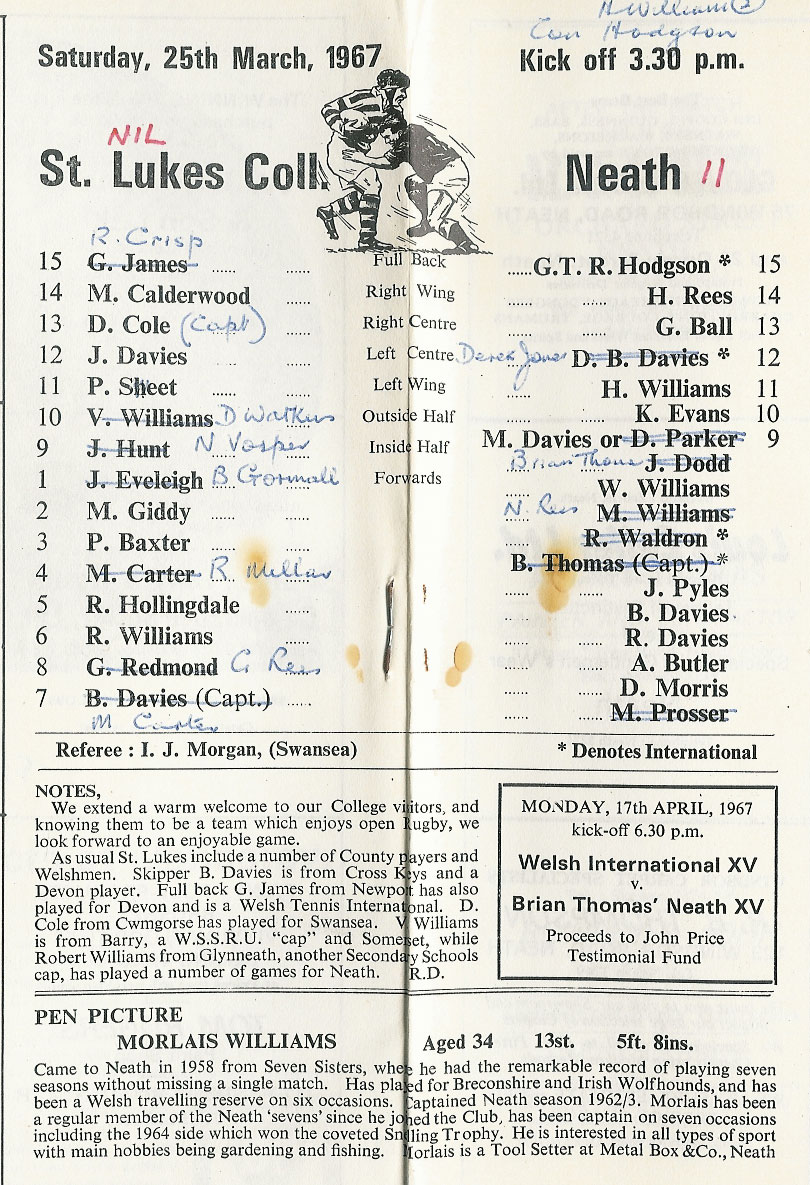 H Williams (2)
Con Hodgson
Saturday, 25th March, 1967
Kick off 3.30 p.m.
NIL
St. Lukes Coll.
Neath 11
R. Crisp
15 G. James ...... ...... Full Back ......G.T. R. Hodgson * 15
14 M. Calderwood ...... Right Wing ...... H. Rees 14
13 D. Cole (Capt) ...... Right Centre ...... ...... G. Ball 13
12 J. Davies ...... ...... Left Centre Derek Jones D. B. Davies * 12
11 P. Sheet ...... ...... Left Wing ...... H. Williams 11
10 V. Williams D Watkins Outside Half ...... ...... K. Evans 10
9 J. Hunt N Vosper Inside Half M. Davies or D. Parker 9
1 J. Eveleigh B Gormall Forwards Brian Thomas J. Dodd
2 M. Giddy ...... ...... ...... W. Williams
3 P. Baxter ...... ...... N. Rees M. Williams
R. Waldron *
4 M. Carter R. Mellar B. Thomas (Capt.) *
5 R. Hollingdale ...... ...... ...... J. Pyles
6 R. Williams ...... ...... B. Davies
...... R. Davies
8 G. Redmond G Rees ...... A. Butler
7 B. Davies (Capt.) ...... ...... ...... D. Morris
M Carter ...... ...... M. Prosser
Referee : I. J. Morgan, (Swansea)
* Denotes International
NOTES,
We extend a warm welcome to our College visitors, and
knowing them to be a team which enjoys open Rugby, we
look forward to an enjoyable game.
As usual St. Lukes include a number of County players and
Welshmen. Skipper B. Davies is from Cross Keys and a
Devon player. Full back G. James from Newport has also
played for Devon and is a Welsh Tennis International. D.
Cole from Cwmgorse has played for Swansea. V Williams
is from Barry, a W.S.S.R.U. "cap" and Somerset, while
Robert Williams from Glynneath, another Secondary Schools
cap, has played a number of games for Neath. R.D.
MONDAY, 17th APRIL, 1967
kick-off 6.30 p.m.
Welsh International XV
v.
Brian Thomas' Neath XV
Proceeds to John Price
Testimonial Fund
PEN PICTURE
MORLAIS WILLIAMS Aged 34 13st. 5ft. 8ins.
Came to Neath in 1958 from Seven Sisters, where he had the remarkable record of playing seven
seasons without missing a single match. Has played for Breconshire and Irish Wolfhounds, and has
been a Welsh travelling reserve on six occasions. Captained Neath season 1962/3. Morlais has been
a regular member of the Neath 'sevens' since he joined the Club, has been captain on seven occasions
including the 1964 side which won the coveted Snelling Trophy. He is interested in all types of sport
with main hobbies being gardening and fishing. Morlais is a Tool Setter at Metal Box &Co., Neath